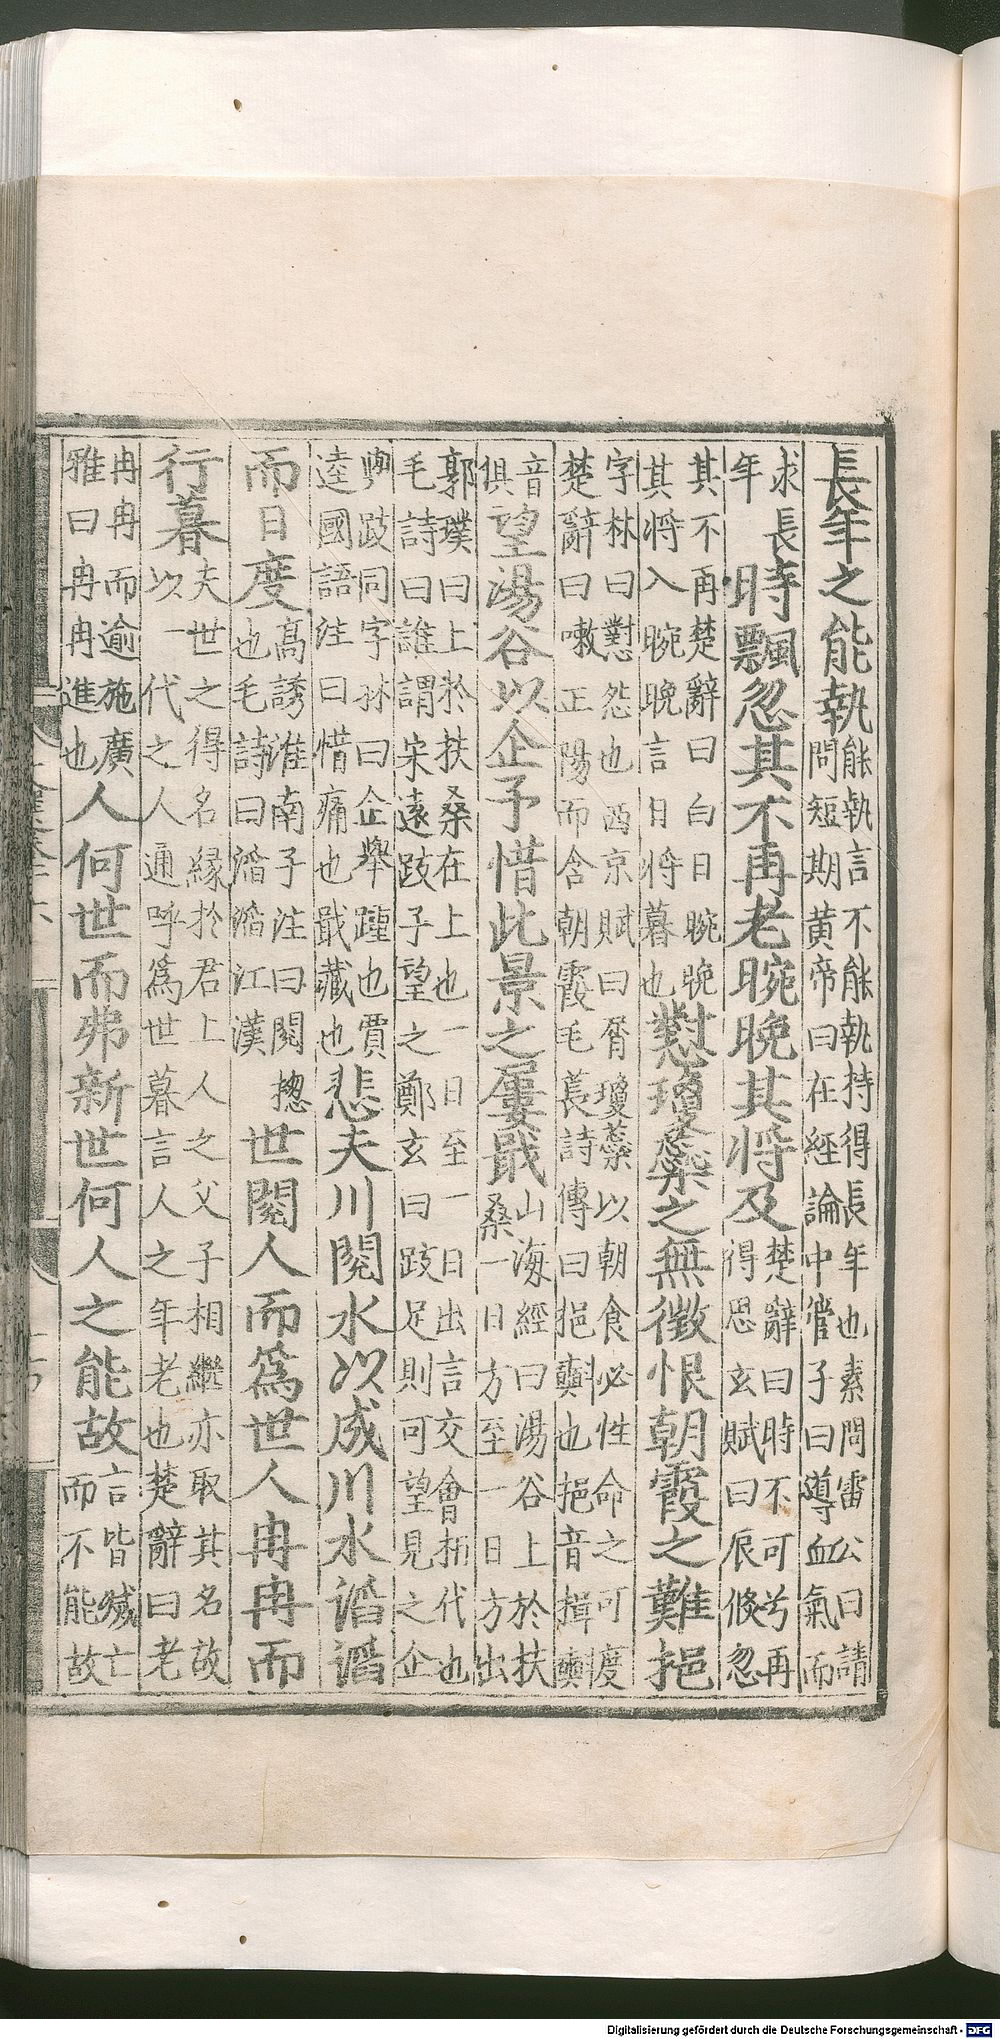 長年之能執能執言不能執持得長年也素問雷公曰請
問短期黄帝曰在經論中管子曰導血氣而
求長
年時飄忽其不再老晼晚其將及楚辭曰時不可兮再
得思玄賦曰辰倐忽
其不再楚辭曰白日晼晚
其將入晼晚言日將暮也懟瓊蘂之無徴恨朝霞之難挹
字林曰懟怨也西京賦曰屑瓊蘂以朝食必性命之可度
楚辭曰嗽正陽而含朝霞毛萇詩傳曰挹㪺也挹音揖㪺
音
俱望湯谷以企予惜此景之屢戢山海經曰湯谷上於扶
桑一日方至一日方出
郭璞曰上於扶桑在上也一日至一日出言交會相代也
毛詩曰誰謂宋遠跂予望之鄭玄曰跂足則可望見之企
與跂同字林曰企舉踵也賈
逵國語注曰惜痛也戢藏也悲夫川閱水以成川水滔滔
而日度高誘淮南子注曰閱揔
也毛詩曰滔滔江漢世閱人而爲世人冉冉而
行暮夫世之得名縁於君上人之父子相繼亦取其名故
以一代之人通呼爲世暮言人之年老也楚辭曰老
冉冉而逾施廣
雅曰冉冉進也人何世而弗新世何人之能故言皆滅亡
而不能故
Digitalisierung gefördert durch die Deutsche Forschungsgemeinschaft - DFG